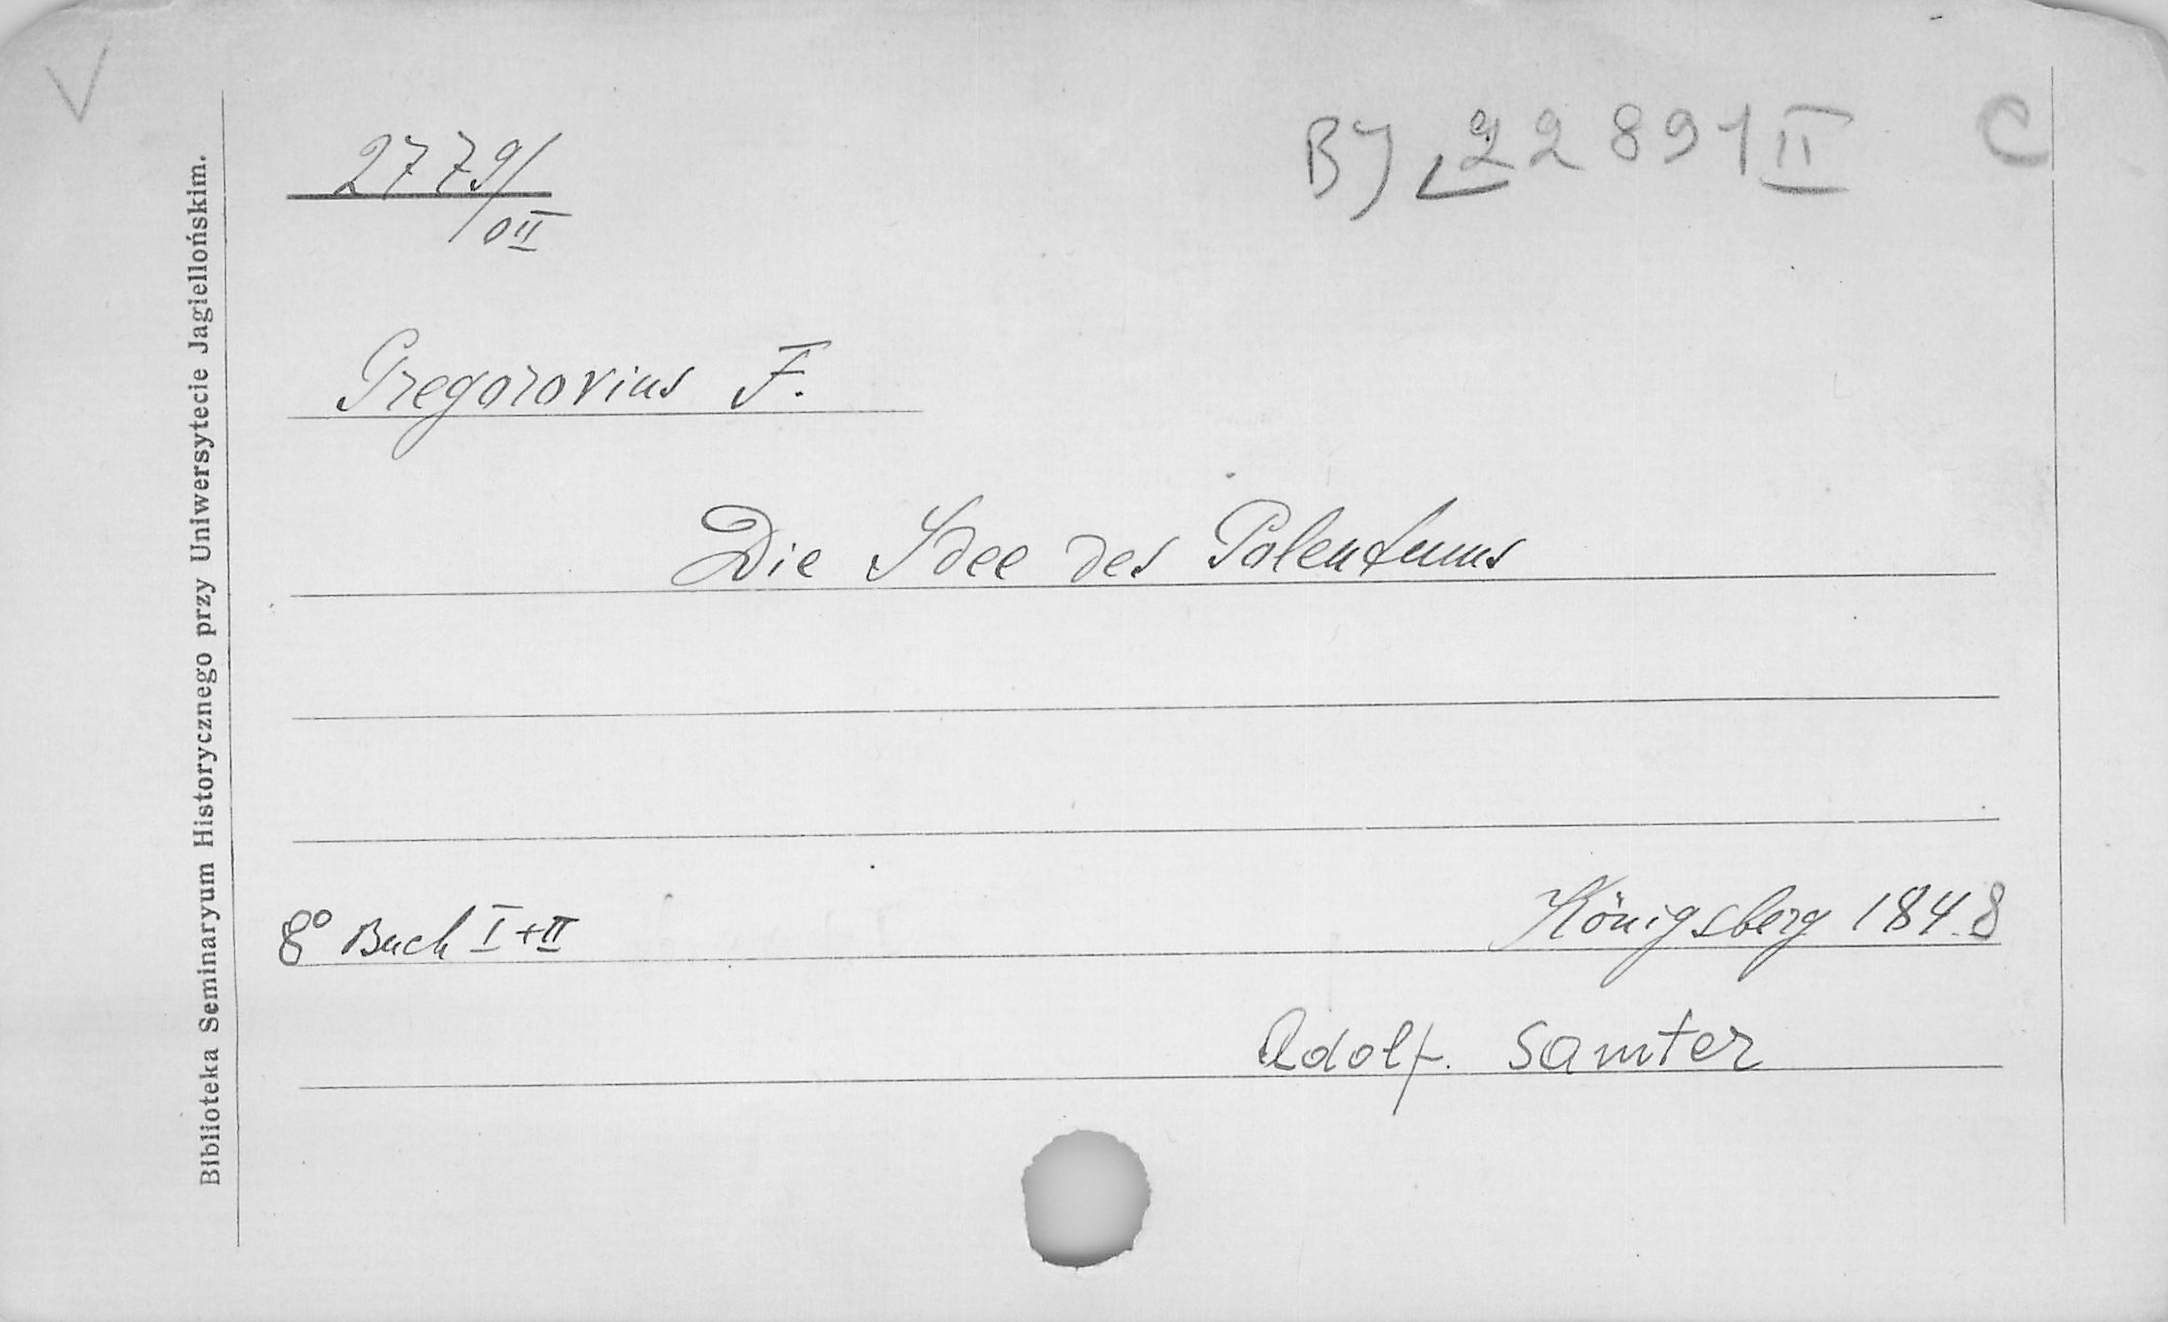 V
2779/
0II
BJ 22891 II C
Gregorovius F.
Die Idee des Polentums
8° Buch I + II
Königsberg 1848
Adolf. Samter
Biblioteka Seminaryum Historycznego przy Uniwersytecie Jagiellońskim.